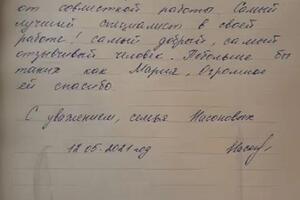 от совместной работы. Самый
лучший специалист в своей
работе! Самый добрый, самый
отзывчивый человек. Побольше бы
таких как Мария, Огромное
ей спасибо.
С уважением, семья Насоновых
12.05.2021 год